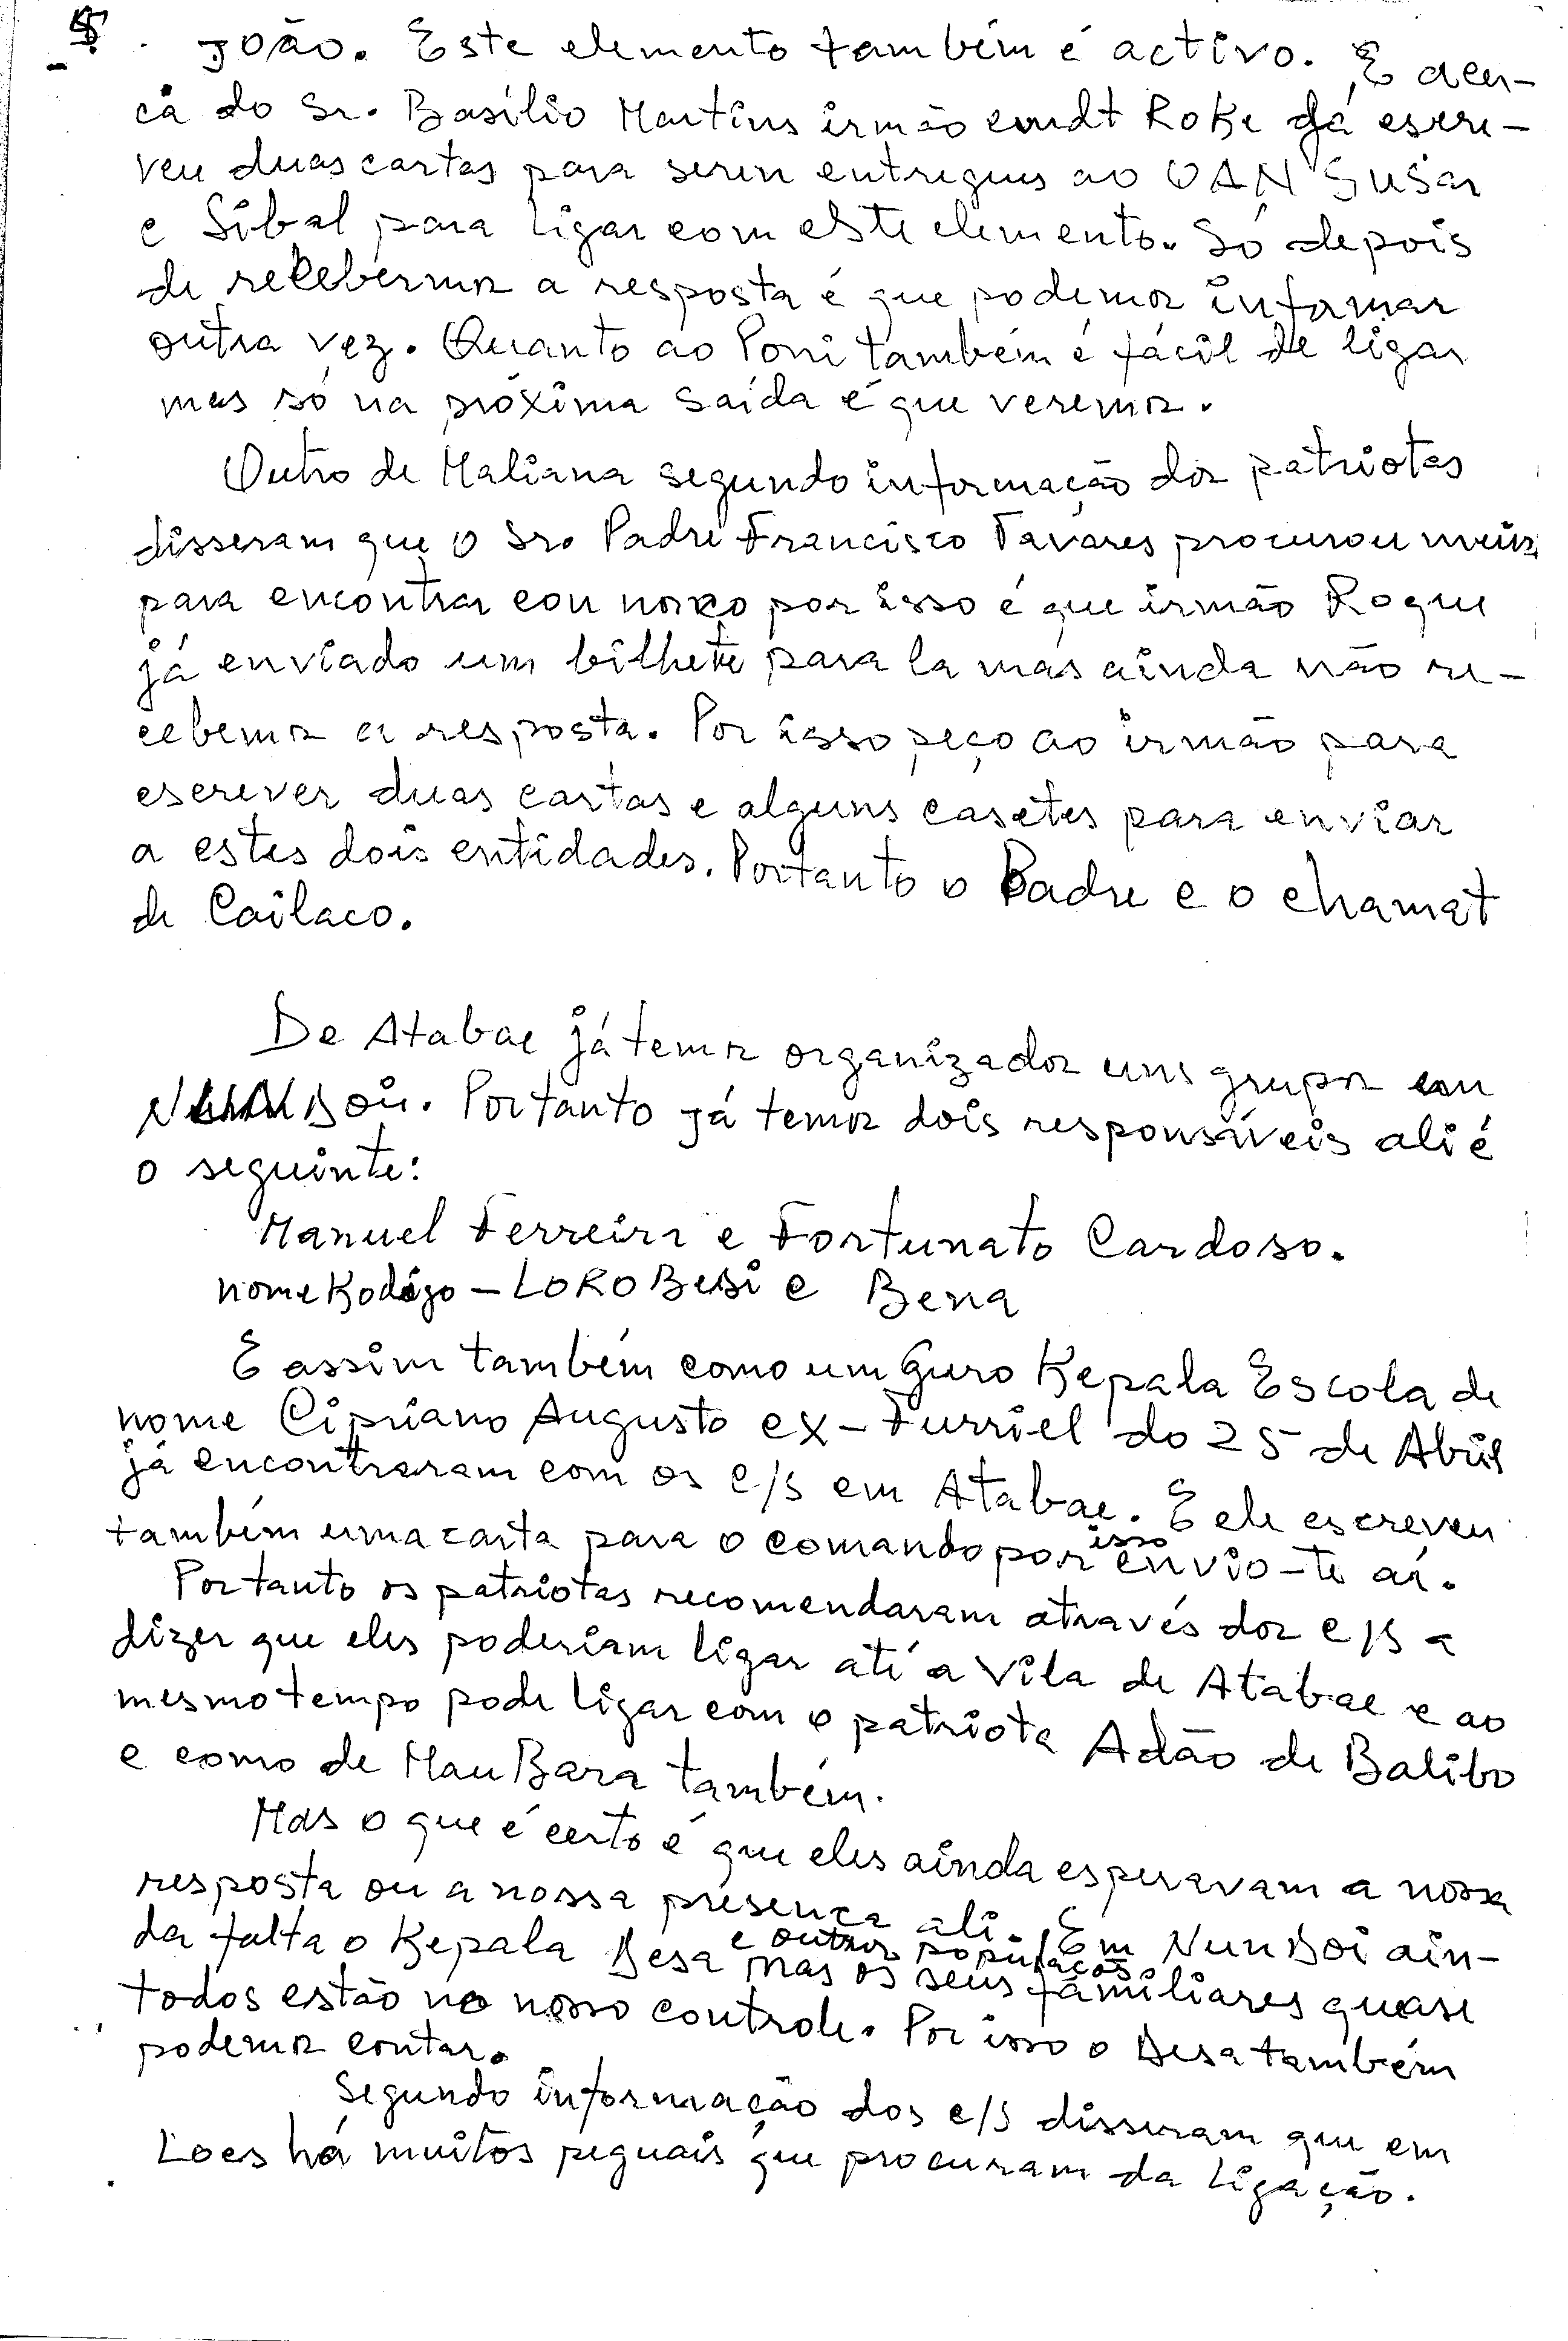 João. Este elemento também é activo. E acer-
ca do Sr. Basílio Martins irmão comdt Roke já escre-
veu duas cartas para serem entregues ao OAN Susar
e Sibal para ligar com este elemento. Só depois
de recebermos a resposta é que podemos informar
outra vez. Quanto ao Poni também é fácil de ligar
mas só na próxima saída é que veremos.
Outro de Maliana segundo informação dos patriotas
disseram que o Sr. Padre Francisco Tavares procurou meios
para encontrar con nosco por isso é que irmão Roque
já enviado um bilhete para la mas ainda não re-
cebemos a resposta. Por isso peço ao irmão para
escrever duas cartas e alguns casetes para enviar
a estes dois entidades. Portanto o Padre e o chamat
de Cailaco.
De Atabae já temos organizados uns grupos em
NUNBOi. Portanto já temos dois responsáveis ali é
o seguinte:
Manuel Ferreira e Fortunato Cardoso.
nome Kodigo - LORO Besi e Bena
E assim também como um Guro Kepala Escola de
nome Cipriano Augusto ex-Furriel do 25 de Abril
já encontraram com os c/s em Atabae. E ele escreveu
também uma carta para o comando por isso envio-te aí.
Portanto os patriotas recomendaram através dos c/s a
dizer que eles poderiam ligar até a Vila de Atabae e ao
mesmo tempo pode ligar com o patriota Adão de Balibo
e como de MauBara também.
Mas o que é certo é que eles ainda esperavam a nossa
resposta ou a nossa presença ali. Em NunBoi ain-
da falta o Kepala Desa e outros populações. mas os seus familiares quase
todos estão no nosso controle. Por isso o Desa também
podemos contar.
Segundo informação dos c/s disseram que em
Loes há muitos peguais que procuram da ligação.